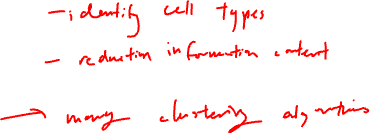 - identify cell types
- reduction information content
→ many clustering algorithms